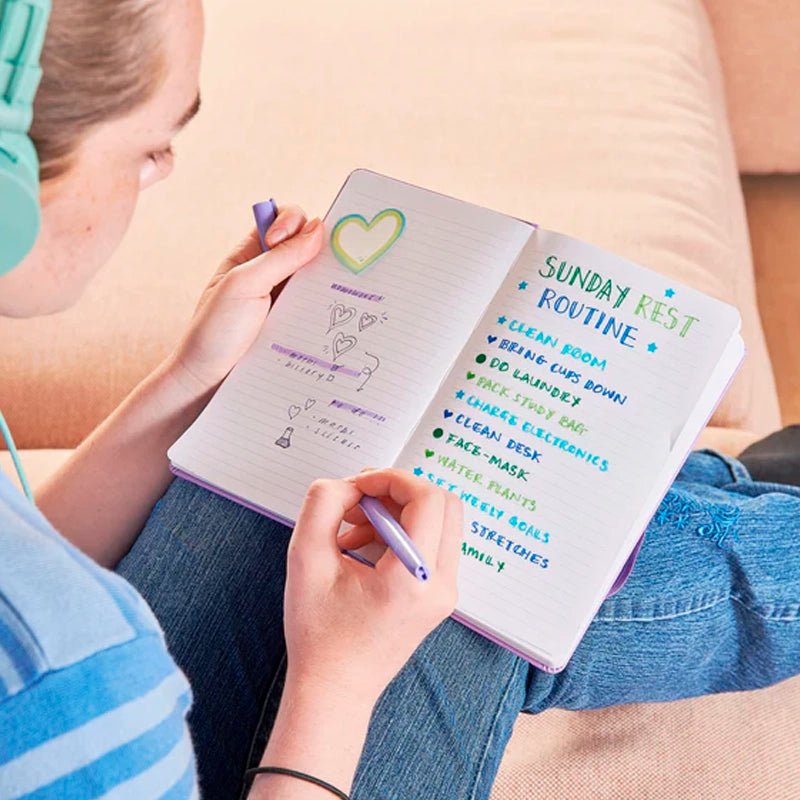 HOMEWORK!
HISTORY
MATHS
SCIENCE
SUNDAY REST
ROUTINE
CLEAN ROOM
BRING CUPS DOWN
DO LAUNDRY
PACK STUDY BAG
CHARGE ELECTRONICS
CLEAN DESK
FACE-MASK
WATER PLANTS
SET WEEKLY GOALS
STRETCHES
AMILY